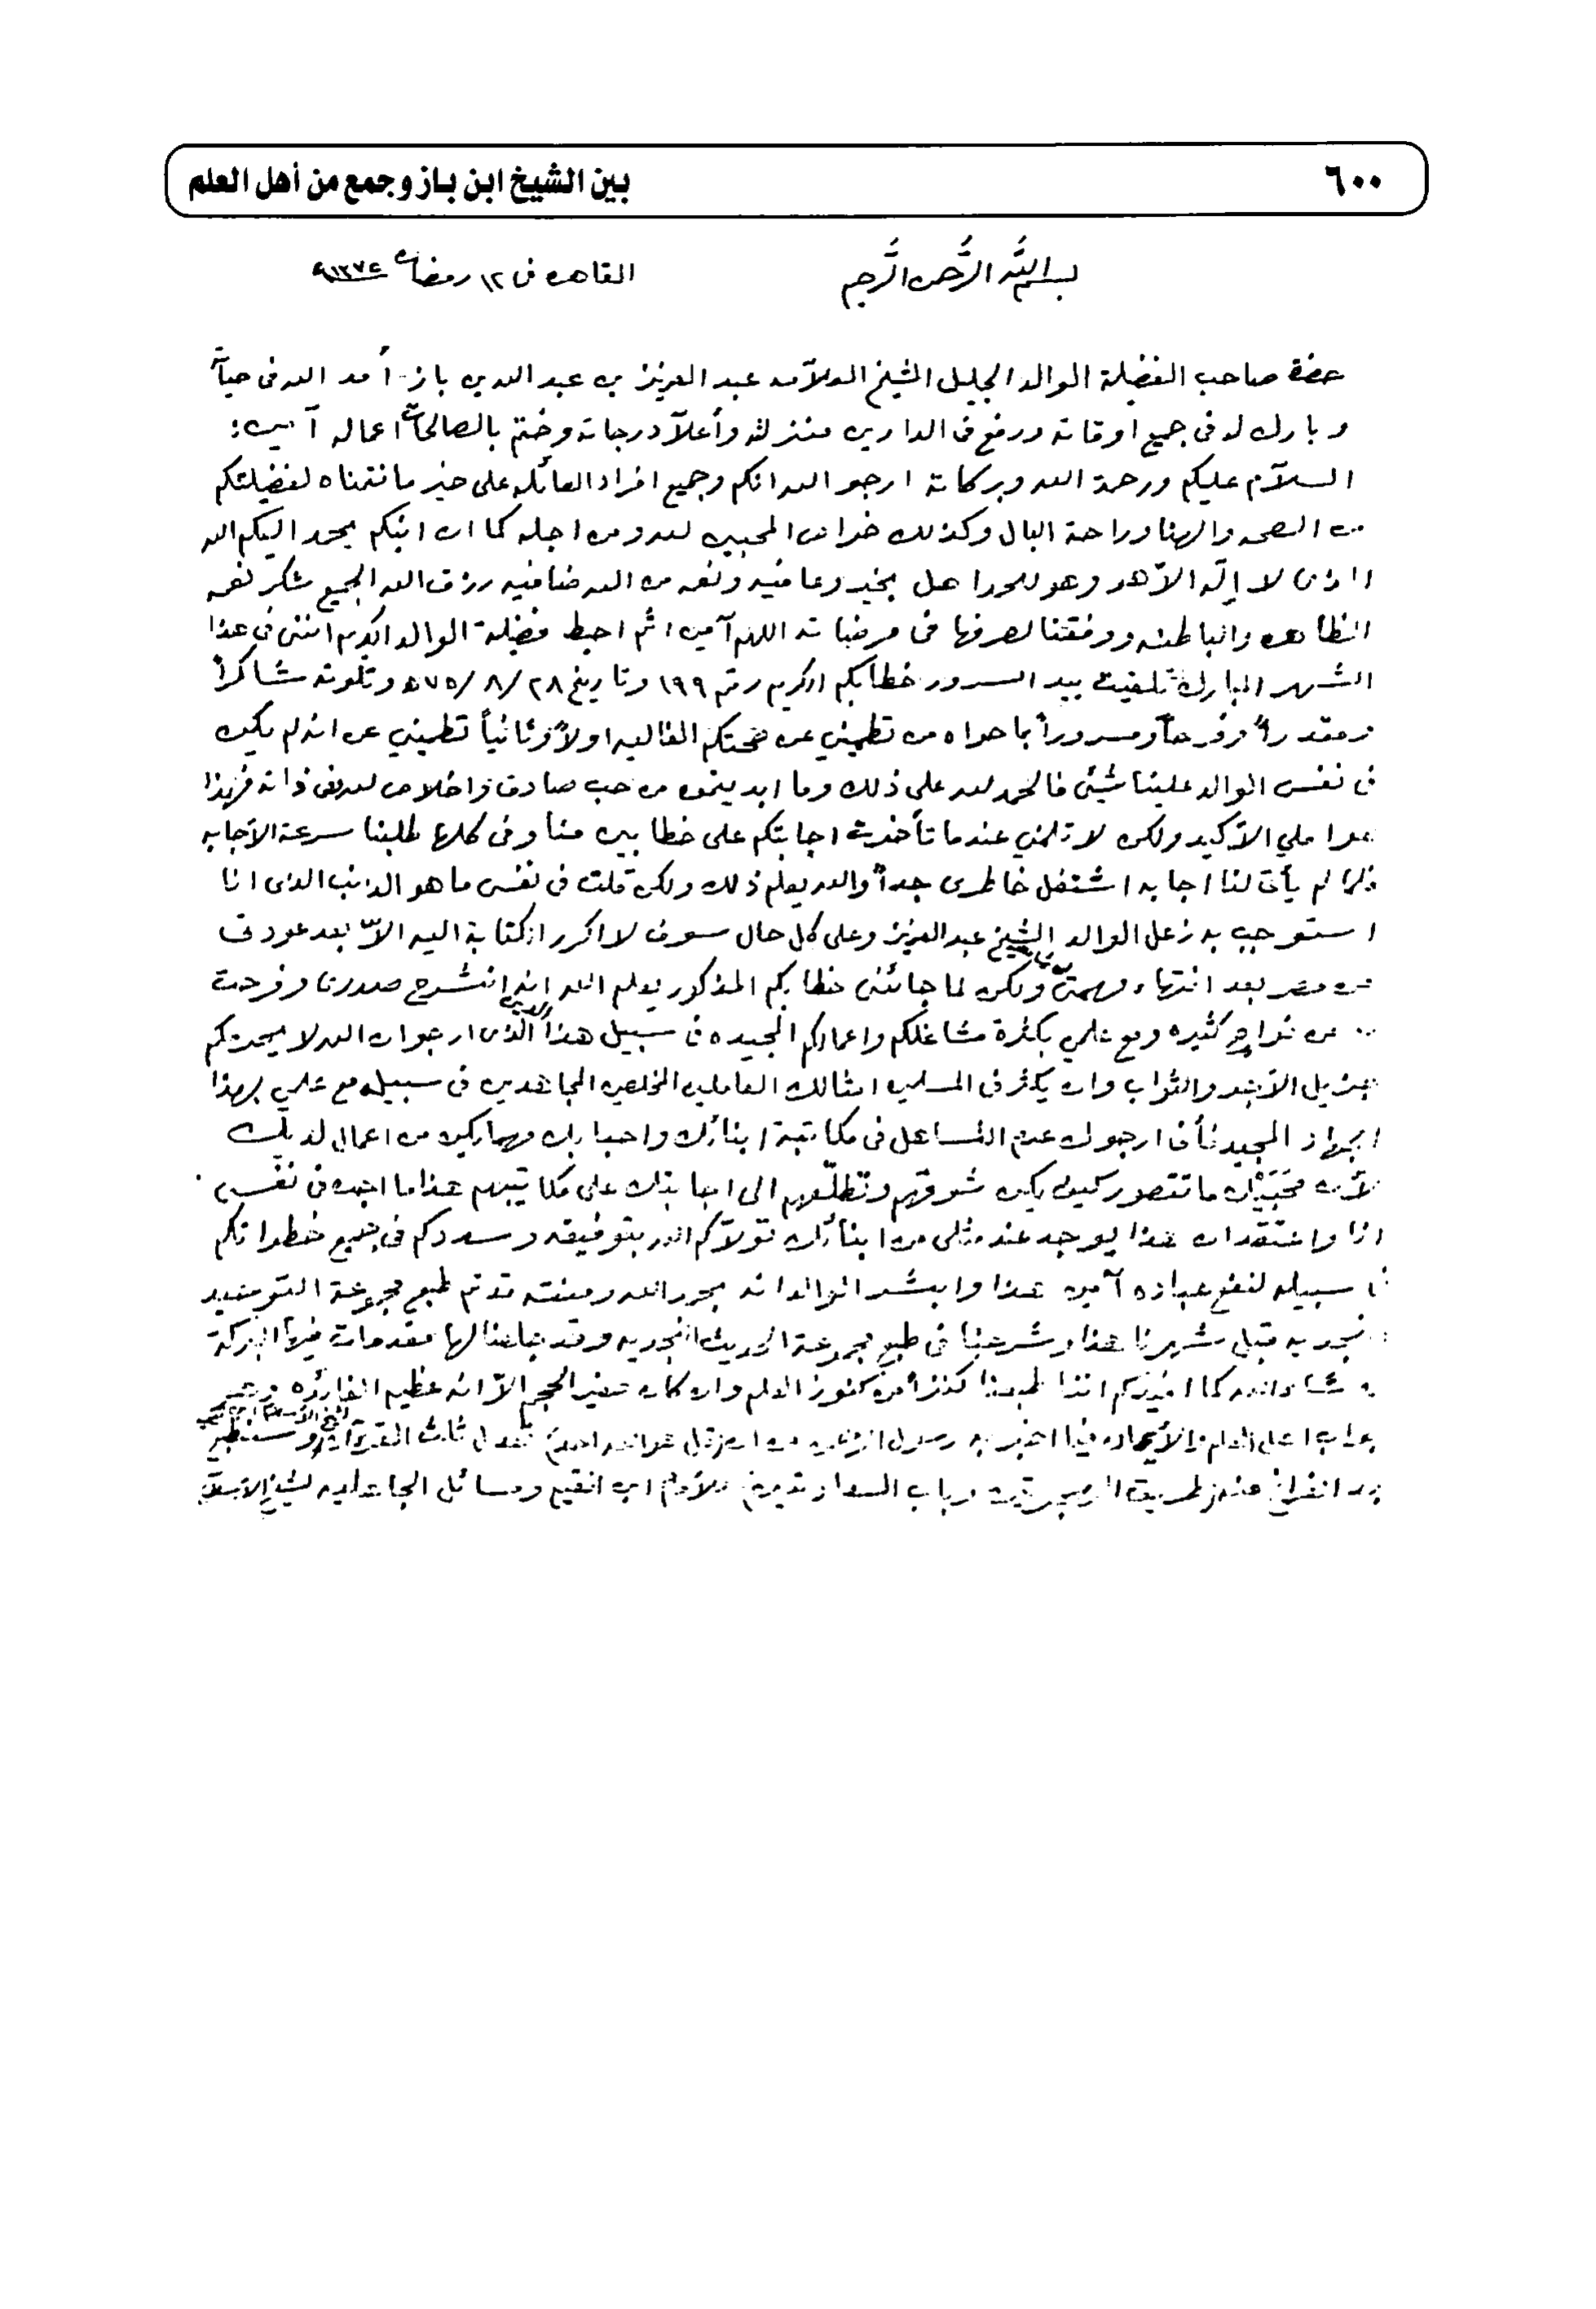 ٦٠٠
بين الشيخ ابن باز وجمع من أهل العلم
بسم الله الرَّحمن الرَّحيم
القاهره فى ١٢ رمضان
حضرة صاحب الفضيلة الوالد الجليل الشيخ العلآمه عبد العزيز بن عبد الله بن باز - أمد الله فى حياته
وبارك له فى جميع اوقاته ورفع فى الدارين منزلته وأعلآ درجاته وختم بالصالحات اعماله آمين:
السلآم عليكم ورحمة الله وبركاته ارجو الله انكم وجميع افراد العائله على خير ما نتمناه لفضيلتكم
من الصحه والهنا وراحة البال وكذلك خواص المحبين لله ومن اجله كما ان ابنكم يحمد اليكم الله
الذى لا إلَه الآ هو وهو للحمد اهل بخير وعافيه ونعمه من الله ضافيه رزق الله الجميع شكر نعمه
الظاهره والباطنه ووفقنا لصرفها فى مرضاته اللهم آمين ثم احيط فضيلة الوالد الكريم اننى فى هذا
الشهر المبارك تلقيت بيد السرور خطابكم الكريم رقم ١٩٩ وتاريخ ٢٨/ ٨/ ٧٥ه وتلوته شاكراً
ومقدراً وفرحاً ومسروراً بما حواه من تطميني عن صحتكم الغاليه اولاً وثانياً تطميني عن انه لم يكن
فى نفس الوالد علينا شيئ فالحمد لله على ذلك وما ابديتموه من حب صادق واخلاص لله فى ذاته فهذا
هو املي الآكيد ولكن لا تلمني عندما تأخرت اجابتكم على خطابين منا وفى كلها طلبنا سرعة الآجابه
فلما لم يأت لنا اجابه اشتغل خاطرى جداً والله يعلم ذلك ولكن قلت فى نفسى ما هو الذنب الذى انا
استوجب به زعل الوالد الشيخ عبد العزيز وعلى كل حال سوف لا اكرر الكتابة اليه الآّ بعد عودتى
من مصر بعد انتهاء مهمتى ولكن لما جائنى خطابكم المذكور يعلم الله انه انشرح صدرى وفرحت
من نواحٍ كثيره ومع علمي بكثرة مشاغلكم واعمالكم المجيده فى سبيل هذا الدين الذى ارجو ان الله لا يحرمكم
جزيل الآجر والثواب وان يكثر فى المسلمين امثالك العاملين المخلصين المجاهدين فى سبيله مع علمي بهذا
الجهاد المجيد فأنى ارجوك عدم التساهل فى مكاتبة ابنائك واحبابك ومهما يكن من اعمال لديك
لآن محبَيْك ما تتصور كيف يكون شوقهم وتطلّعهم الى اجابتك على مكاتيبهم هذا ما اجده فى نفسى
انا واعتقد ان هذا يوجد عند مثلى من ابنائك تولآكم الله بتوفيقه وسددكم فى جميع خطواتكم
فى سبيله لنفع عباده آمين هذا وابشر الوالد انه بحمد الله ومنته قد تم طبع مجموعة التوحيد
النجديه قبل شهرنا هذا وشرعنا فى طبع مجموعة الحديث النجديه وقد جعلنا لها مقدمات فيها البركة
ان شاء الله كما افيدكم اننا طبعنا كنزاً من كنوز العلم وان كان صغير الحجم الآّ انه عظيم الفائده وهو
جواب اهل العلم والآيمان فيما اخبر به رسول الرحمن من ان قل هو الله احد تعدل ثلث القرآن وسنطبع
بعد الفراغ منه طريق الهجرتين وباب السعادتين للآمام ابن القيم ومسائل الجاهليه لشيخ الآسلآم